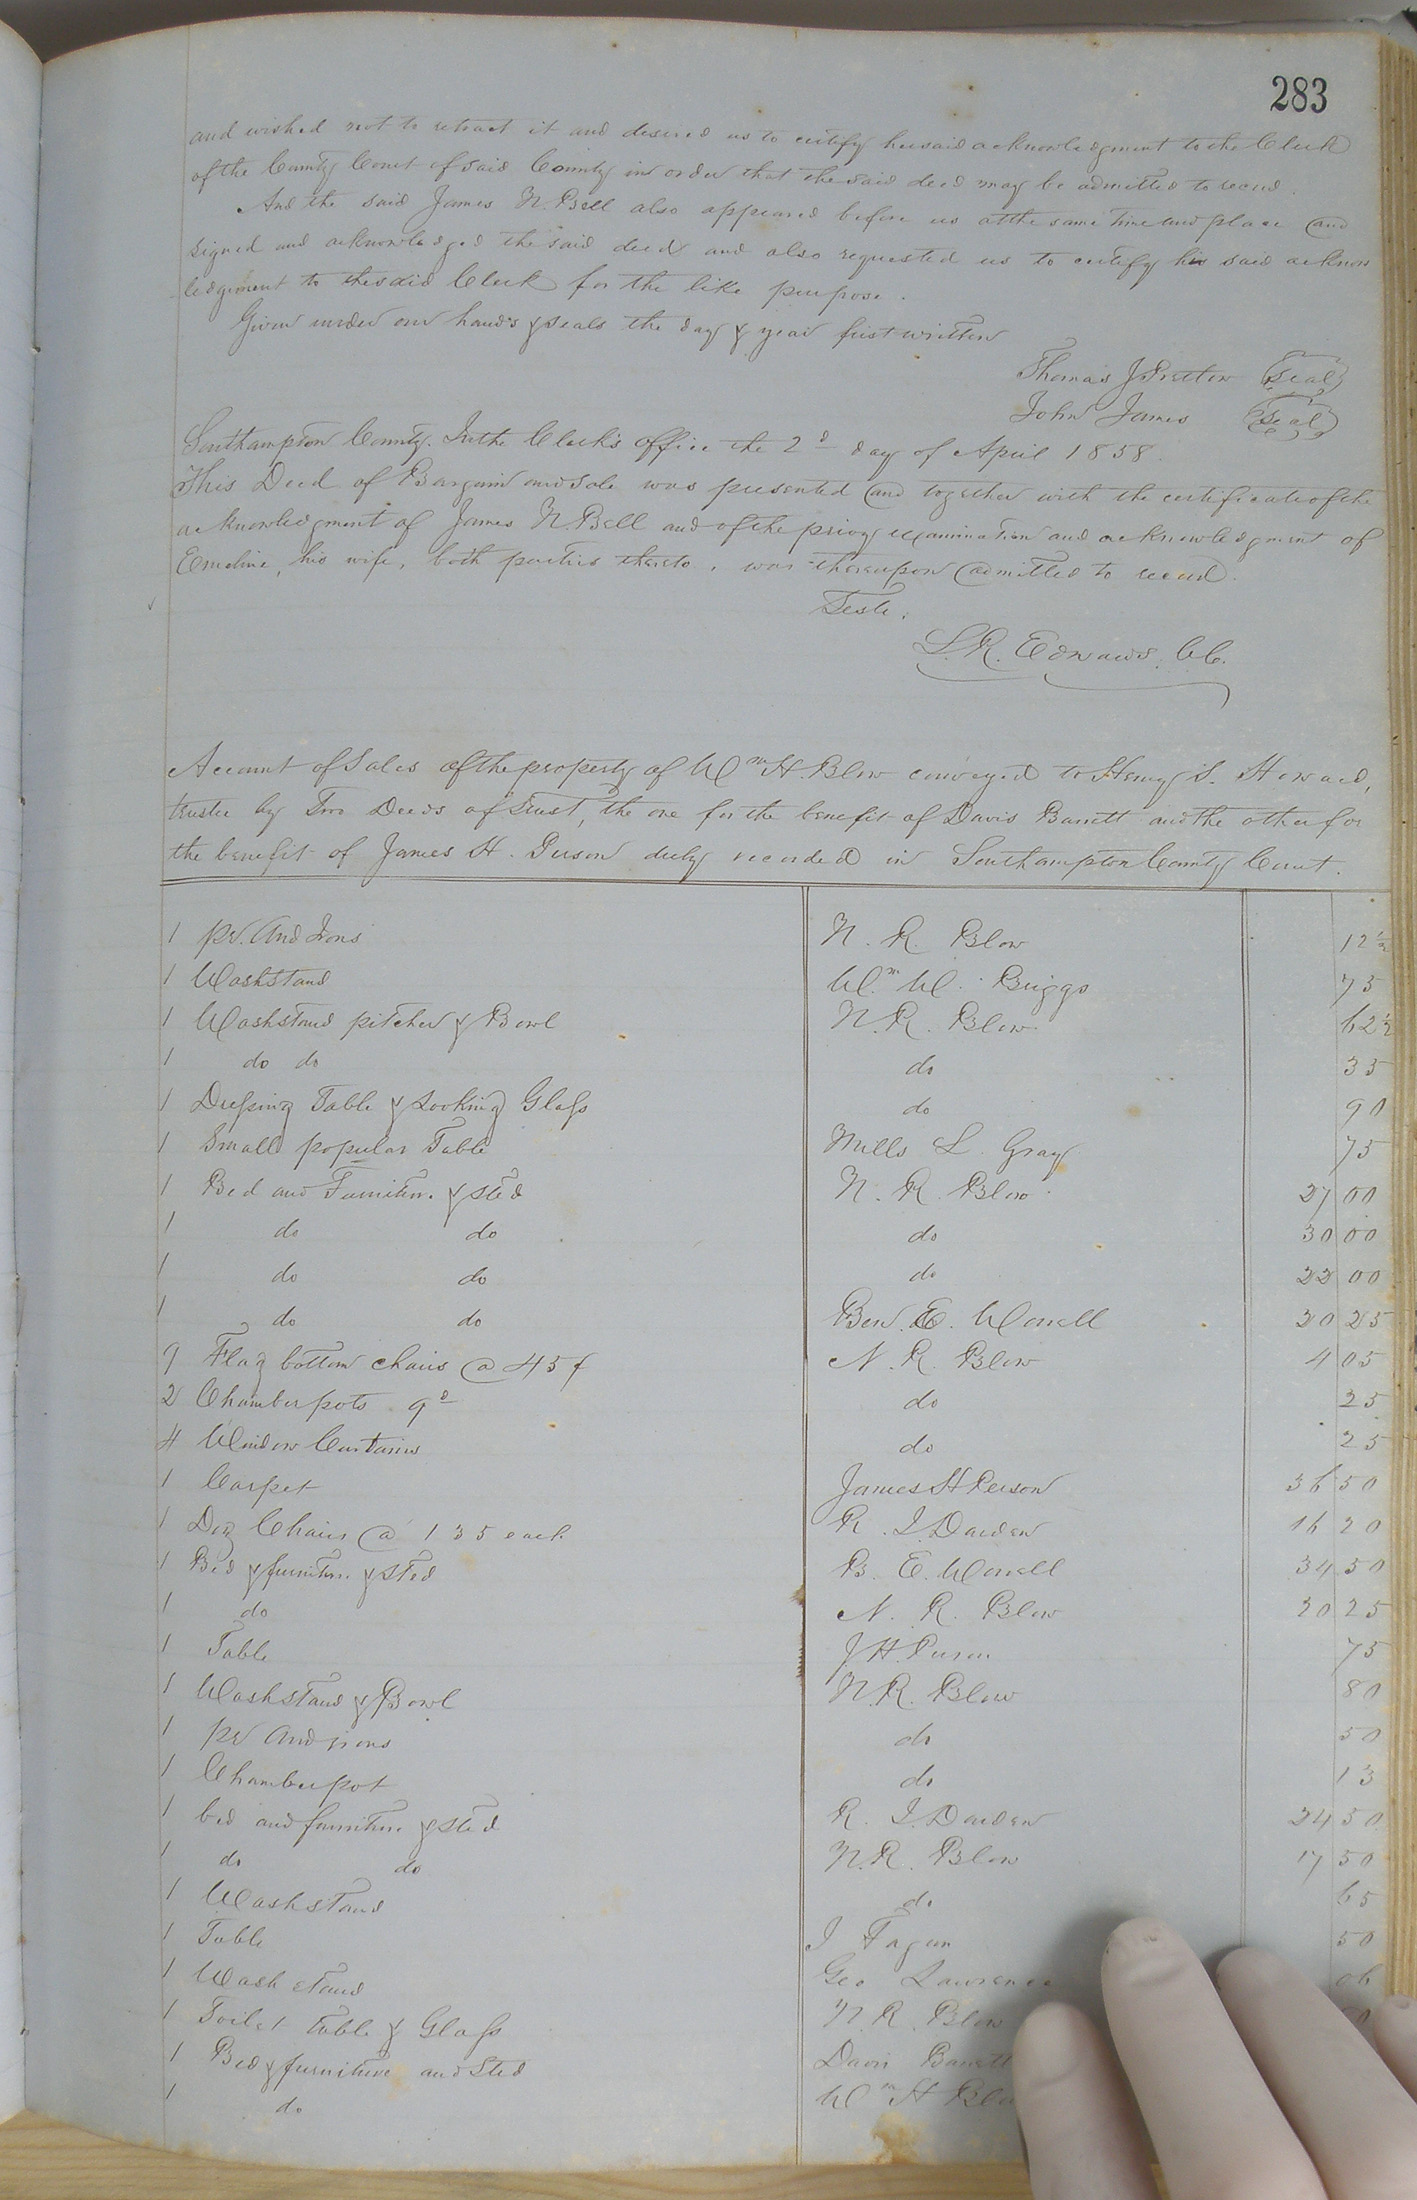 283
and wished not to retract it and desired us to certify her said acknowledgment to the Clerk
of the County Court of said County in order that the said deed may be admitted to record.
And the said James N. Bell also appeared before us at the same time and place and
signed and acknowledged the said deed and also requested us to certify his said acknow
ledgment to the said Clerk for the like purpose.
Given under our hands & seals the day & year first written
Thomas J Pretlow Seal
John James Seal
Southampton County. In the Clerk's office the 2d day of April 1858.
This Deed of Bargain and sale was presented and together with the certificate of the
acknowledgment of James N Bell and of the privy examination and acknowledgment of
Emeline, his wife, both parties thereto, was thereupon admitted to record.
Teste,
L. R. Edwards, CC.
Account of Sales of the property of Wm H. Blow conveyed to Henry S. Howard,
trustee by Two Deeds of Trust, the one for the benefit of Davis Barrett and the other for
the benefit of James H. Person duly recorded in Southampton County Court.
1 pr. And Irons N. R. Blow 12½
1 Washstand Wm W. Briggs 75
1 Washstand pitcher & Bowl N. R. Blow 62½
1 do do do 35
1 Dressing Table & Looking Glass do 90
1 Small popular Table Mills L. Gray 75
1 Bed and Furniture & sted N. R. Blow 27 00
1 do do do 30 00
1 do do do 22 00
1 do do Ben. E. Worrell 20 25
9 Flag bottom chairs @ 45¢ N. R. Blow 4 05
2 Chamber pots 9d do 25
4 Window Curtains do 25
1 Carpet James H Person 36 50
1 Doz Chairs @ 1 35 each R. I. Darden 16 20
1 Bed & furniture & sted B. E. Worrell 34 50
1 do N. R. Blow 20 25
1 Table J H. Person 75
1 Washstand & Bowl N. R. Blow 80
1 pr And irons do 50
1 Chamber pot do 13
1 bed and furniture & sted R. I. Darden 24 50
1 do do N. R. Blow 17 50
1 Washstand do 65
1 Table 50
1 Wash stand Geo Lawrence 06
1 Toilet table & Glass N R. Blow
1 Bed & furniture and Sted Davis Barrett
1 do Wm H Blow